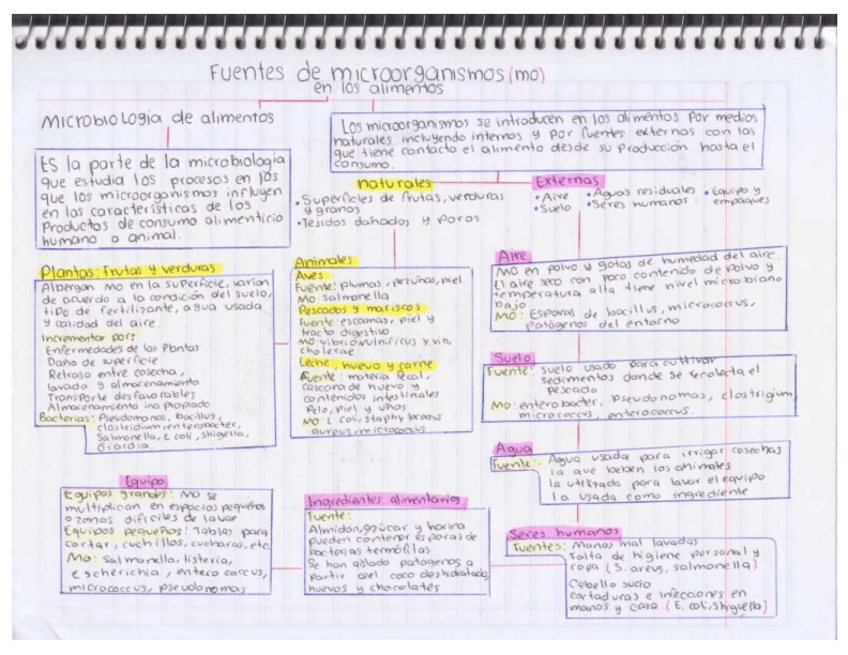 Fuentes de microorganismos (mo)
en los alimentos
Microbiologia de alimentos
Es la parte de la microbiologia
que estudia los procesos en los
que los microorganismos influyen
en las características de los
productos de consumo alimenticio
humano o animal.
Los microorganismos se introducen en los alimentos por medios
naturales incluyendo internos y por fuentes externas con las
que tiene contacto el alimento desde su producción hasta el
consumo.
naturales
• Superficies de frutas, verduras
y granos
• Tejidos dañados y poros
Externas
• Aire • Aguas residuales • Equipo y
• Suelo • Seres humanos empaques
Plantas: frutas y verduras
Albergan mo en la superficie, varían
de acuerdo a la condición del suelo,
tipo de fertilizante, agua usada
y calidad del aire.
Incrementar por:
Enfermedades de las plantas
Daño de superficie
Retraso entre cosecha,
lavado y almacenamiento
Transporte desfavorables
Almacenamiento inapropiado
Bacterias: Pseudomonas, bacillus,
clostridium, enterobacter,
Salmonella, E coli, shigella,
Giardia.
Animales
Aves
Fuente: plumas, pezuñas, piel.
Mo: Salmonella
Pescados y mariscos
fuente escamas, piel y
tracto digestivo
mo: vibrio vulnificus y vib.
cholerae
Leche, huevo y carne
Fuente: materia fecal,
cascara de huevo y
contenidos intestinales
Pelo, piel y uñas
MO: E coli, staphylococcus
aureus, micrococcus
Aire
MO en polvo y gotas de humedad del aire.
El aire seco con poco contenido de polvo y
temperatura alta tiene nivel microbiano
bajo
MO: Esporas de bacillus, micrococcus,
patógenos del entorno
Suelo
Fuente: suelo usado para cultivar
sedimentos donde se recolecta el
pescado
Mo: enterobacter, Pseudonomas, clostrigium,
micrococcus, enterococcus.
Agua
fuente: Agua usada para irrigar cosechas
la que beben los animales
la utilizada para lavar el equipo
la usada como ingrediente
Equipo
Equipos grandes: MO se
multiplican en espacios pequeños
o zonas difíciles de lavar
Equipos pequeños: Tablas para
cortar, cuchillos, cucharas, etc
Mo: Salmonella, listeria,
escherichia, enterococcus,
micrococcus, pseudonomas
Ingredientes alimentarios
Fuente:
Almidón, azúcar y harina
pueden contener esporas de
bacterias termófilas
Se han aislado patógenos a
partir del coco deshidratado,
huevos y chocolates
Seres humanos
Fuentes: Manos mal lavadas
Falta de higiene personal y
ropa (S. areus, salmonella)
Cabello sucio
cortaduras e infecciones en
manos y cara (E. coli, shiguella)